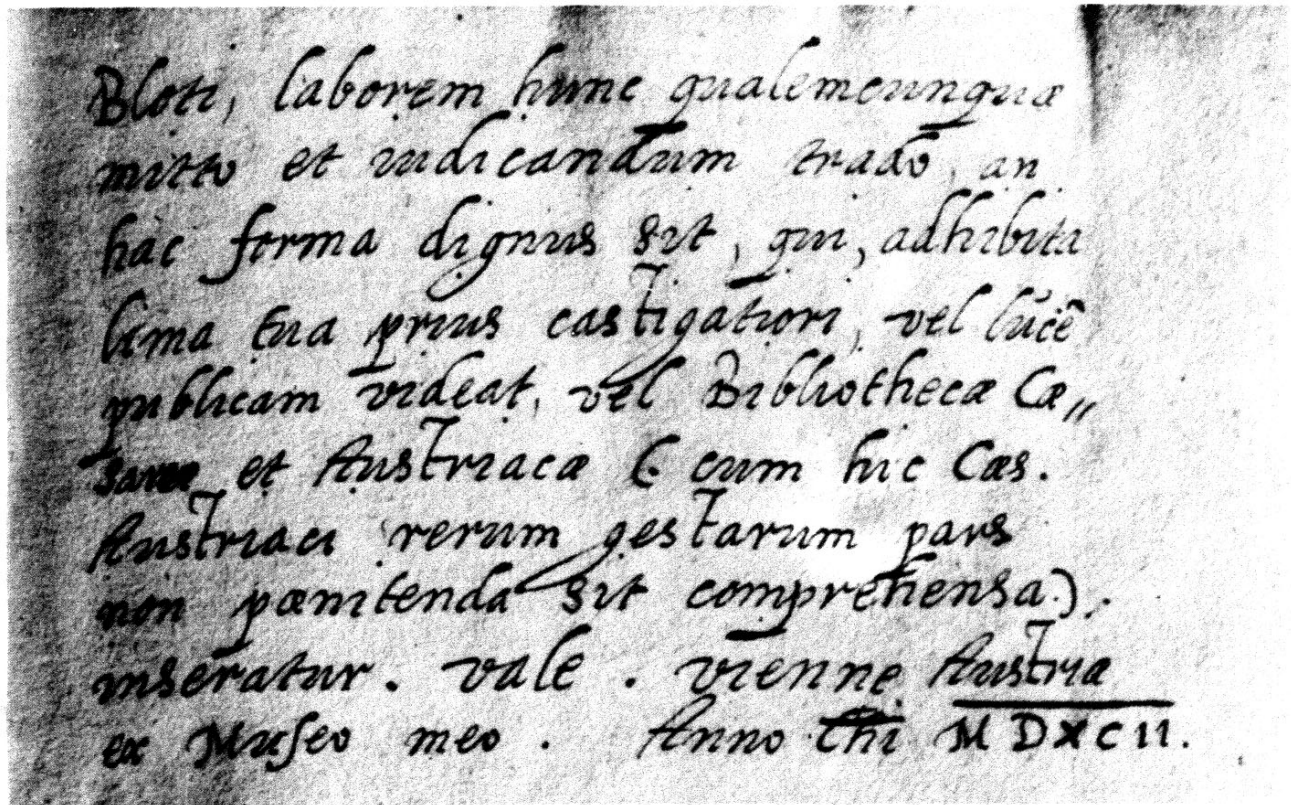 Bloti, laborem hunc qualemcunque
mitto et iudicandum trado, an
hac forma dignus sit, qui, adhibita
lima tua prius castigatiori, vel lucē
publicam videat, vel Bibliothecæ Cæ„
et Austriacæ (cum hic Cæs.
Austriaci rerum gestarum pars
non pœnitenda sit comprehensa).
inseratur. Vale. Viennę Austriæ
ex Museo meo. Anno Chi MDXCII.